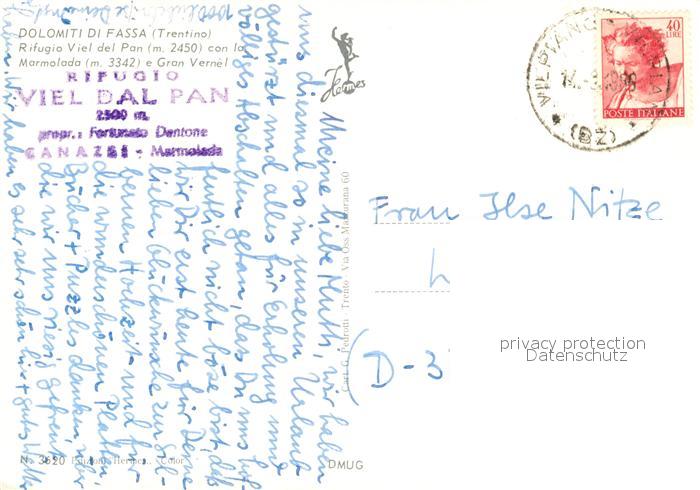 DOLOMITI DI FASSA (Trentino)
Rifugio Viel del Pan (m. 2450) con la
Marmolada (m. 3342) e Gran Vernèl
RIFUGIO
VIEL DAL PAN
2500 m.
propr.: Fortunato Dantone
CANAZEI - Marmolada
Hermes
40
LIRE
POSTE ITALIANE
(BZ)
Meine liebe Mutti, wir haben
uns diesmal so in unseren Urlaub
gestürzt und alles für Erholung und
völliges Abschalten getan, daß Du uns hof-
fentlich nicht böse bist, daß
wir Dir erst heute für Deine
lieben Glückwünsche zur Sil-
bernen Hochzeit und für
die wunderschönen Platten
Bücher + Puzzles danken, über
die wir uns riesig gefreut
haben. Wir haben es sehr sehr schön hier + gutes
Cart. G. Pedrotti - Trento - Via Oss Mazzurana 60
Frau Ilse Nitze
(D-3
privacy protection
Datenschutz
N. 3620 Edizioni Color
DMUG